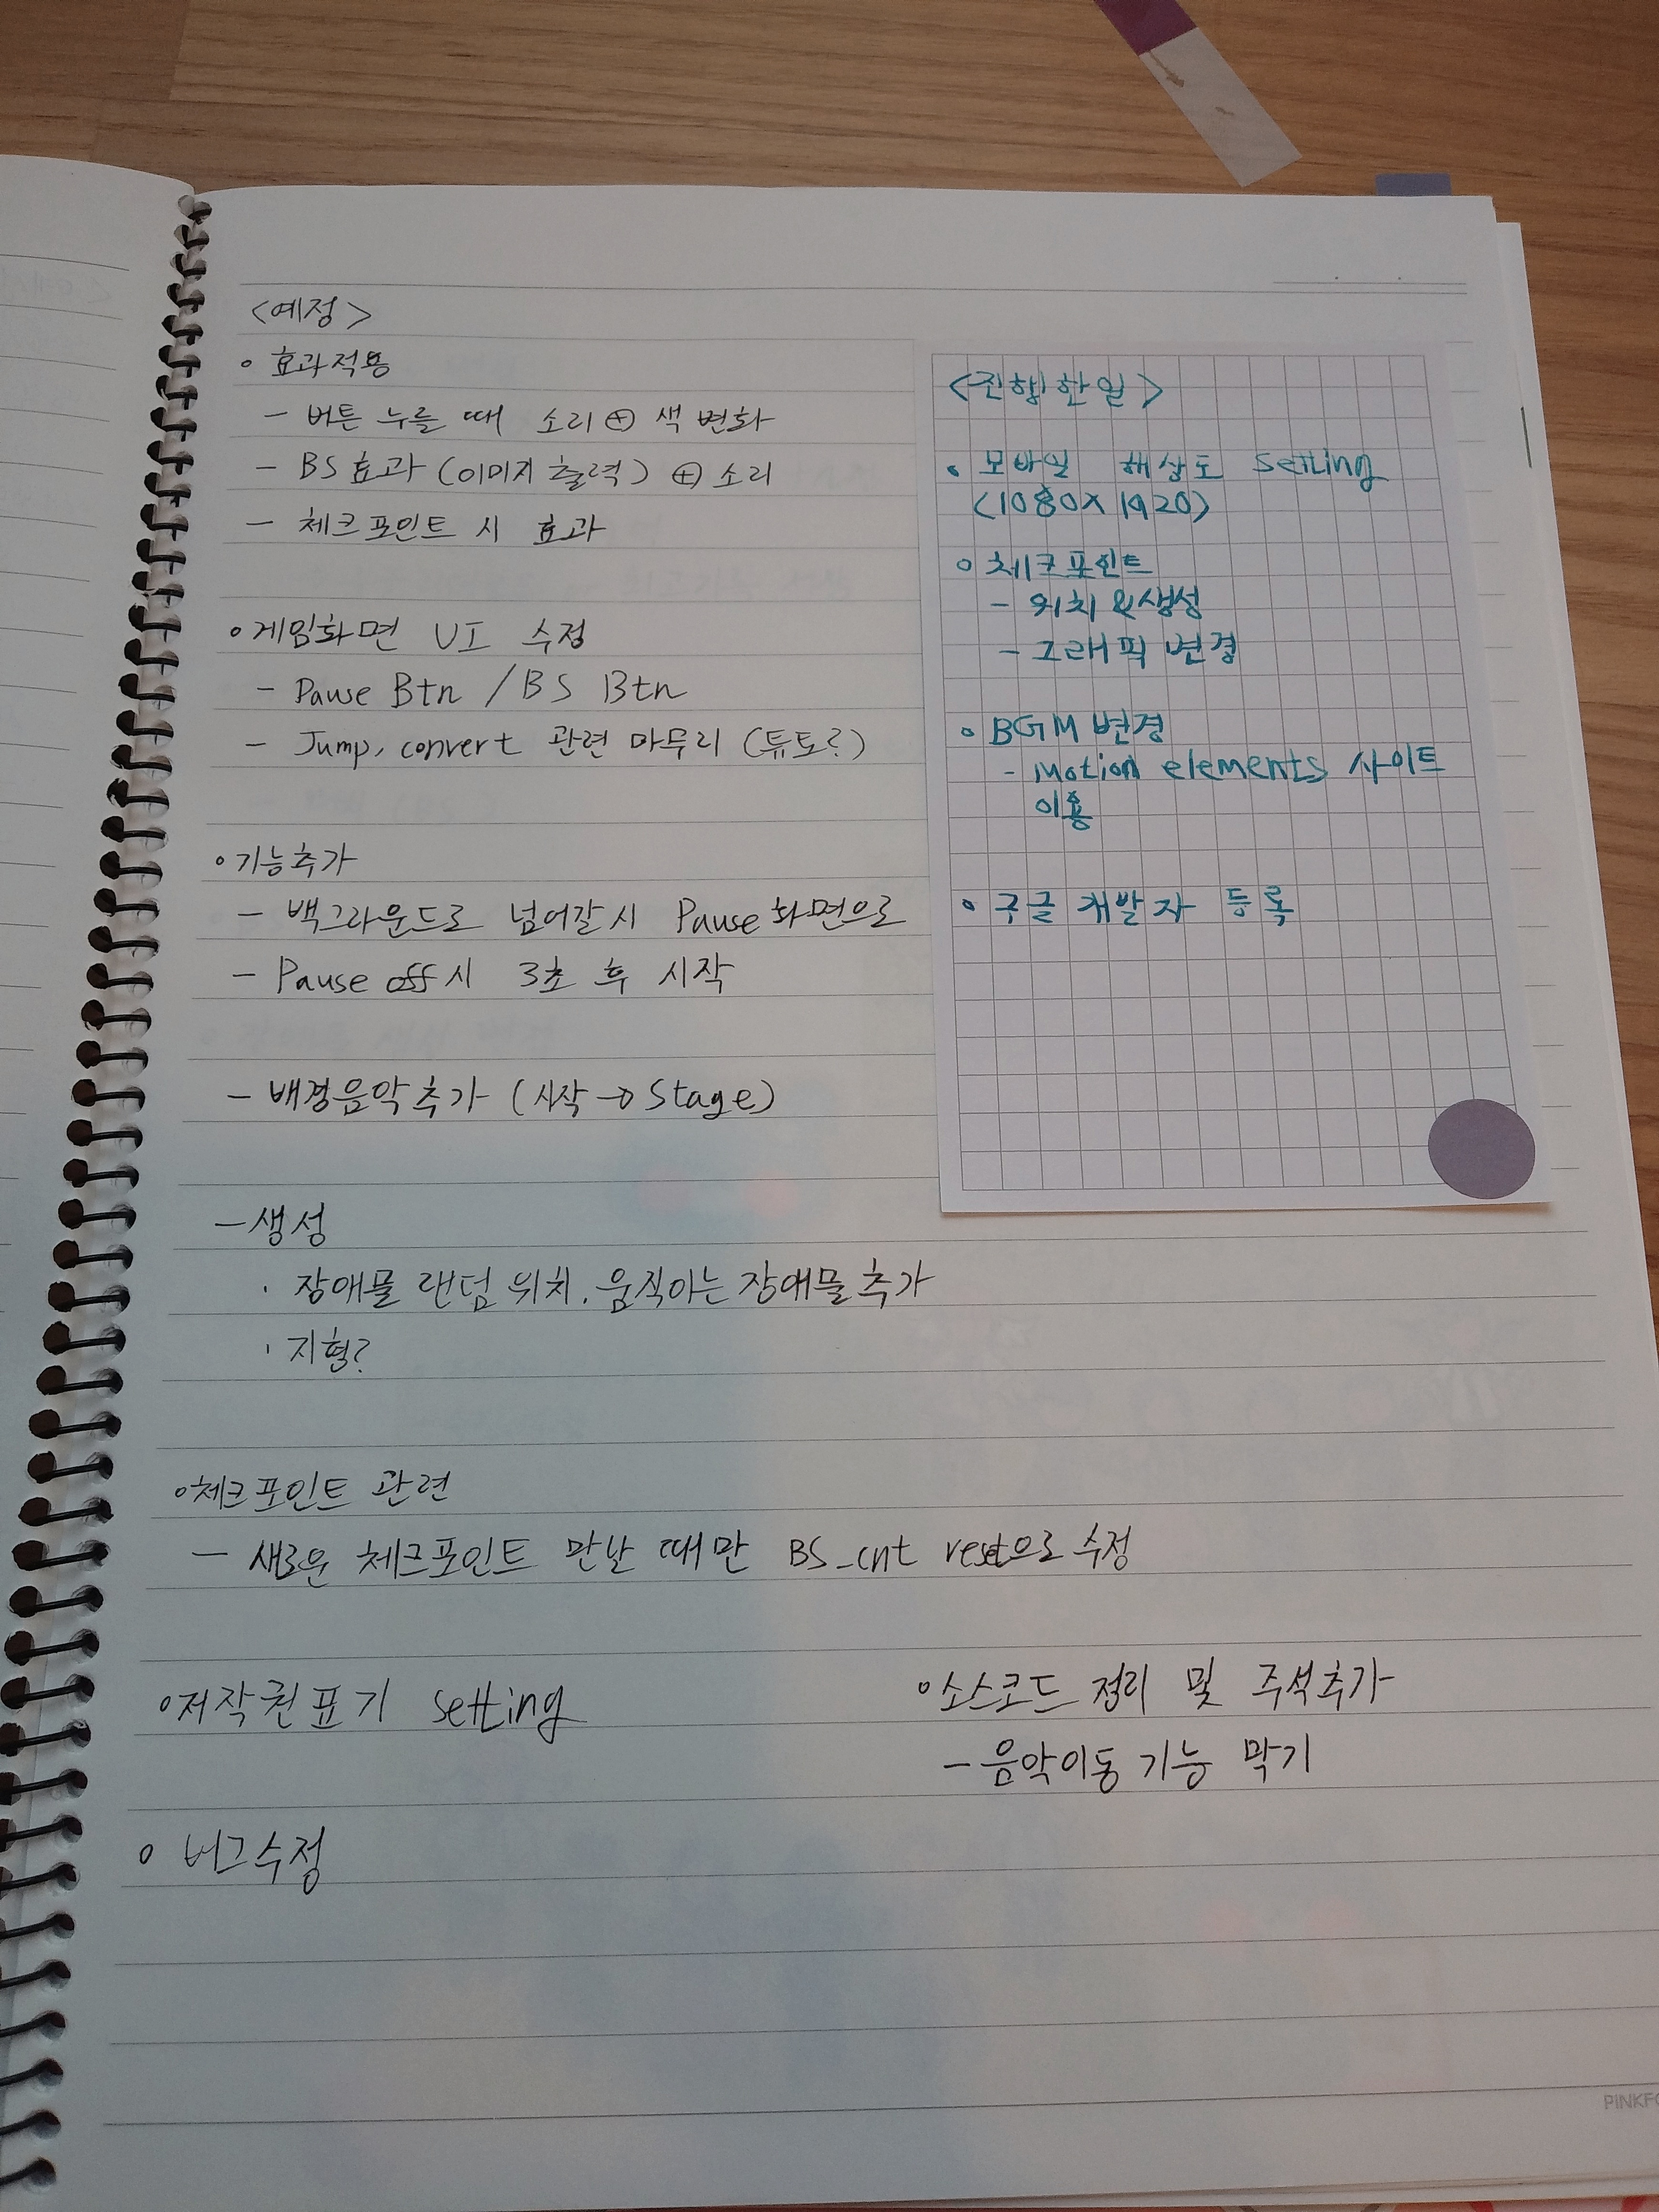 <예정>
◦ 효과적용
- 버튼 누를 때 소리 ⊕ 색 변화
- BS효과 (이미지 출력) ⊕ 소리
- 체크포인트 시 효과
◦ 게임화면 UI 수정
- Pause Btn / BS Btn
- Jump, convert 관련 마무리 (튜토?)
◦ 기능추가
- 백그라운드로 넘어갈 시 Pause 화면으로
- Pause off 시 3초 후 시작
- 배경음악 추가 (시작 → Stage)
- 생성
· 장애물 랜덤 위치, 움직이는 장애물 추가
· 지형?
◦ 체크포인트 관련
- 새로운 체크포인트 만날 때만 BS_cnt reset으로 수정
◦ 저작권표기 setting
◦ 버그수정
◦ 소스코드 정리 및 주석추가
- 음악이동 기능 막기
<진행한일>
• 모바일 해상도 setting
(1080x1920)
◦ 체크포인트
- 위치 & 생성
- 그래픽 변경
◦ BGM 변경
- Motion elements 사이트
이용
• 구글 개발자 등록